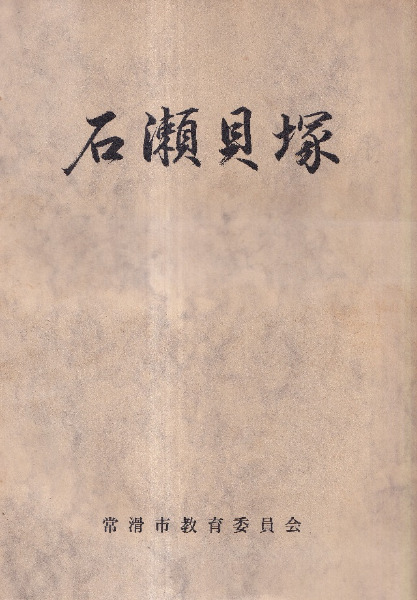 石瀬貝塚
常滑市教育委員会